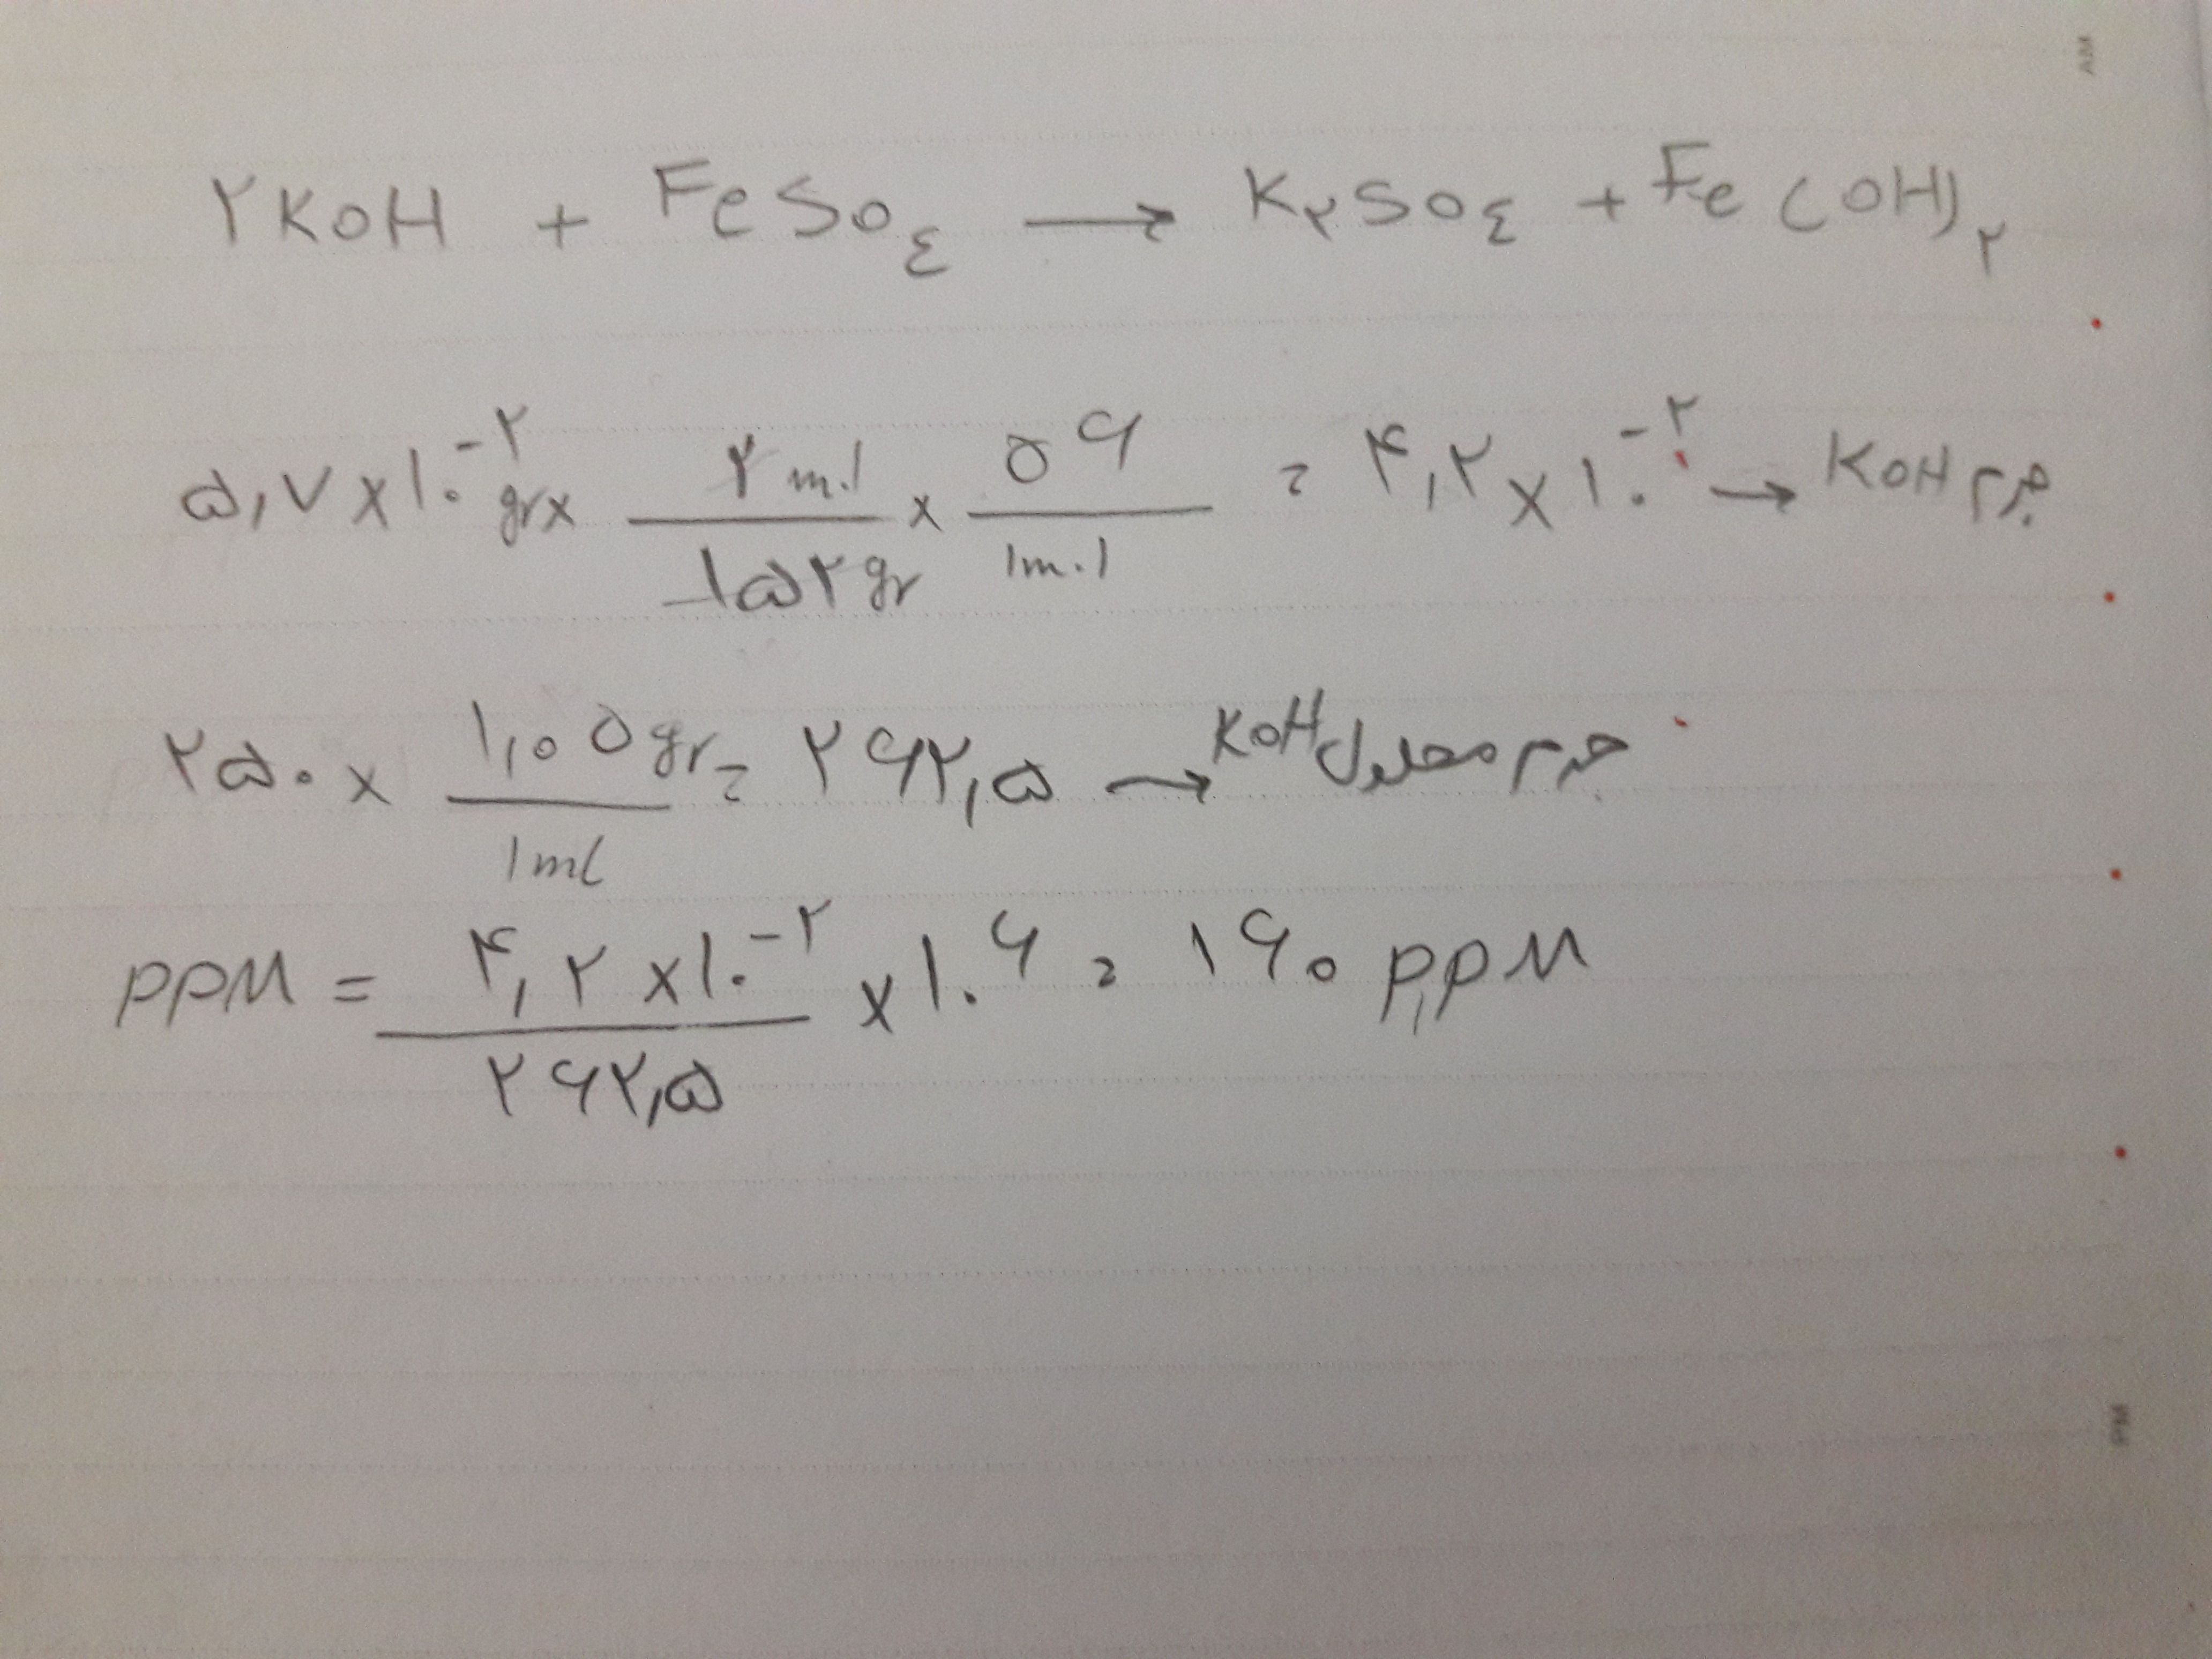 AM
۲KOH + FeSO٤ → K۲SO٤ + Fe(OH)۲
۵٫۷ × ۱۰⁻۲ gr × ۲ mol / ۱۵۲ gr × ۵۶ / ۱ mol = ۴٫۲ × ۱۰⁻۲ → KOH جرم
۲۵۰ × ۱٫۰۵ gr / ۱ ml = ۲۶۲٫۵ → KOH جرم محلول
ppM = ۴٫۲ × ۱۰⁻۲ / ۲۶۲٫۵ × ۱۰۶ = ۱۶۰ ppM
PM